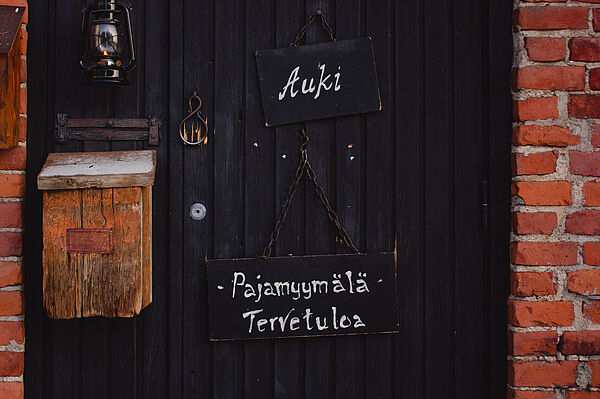 Auki
- Pajamyymälä -
Tervetuloa